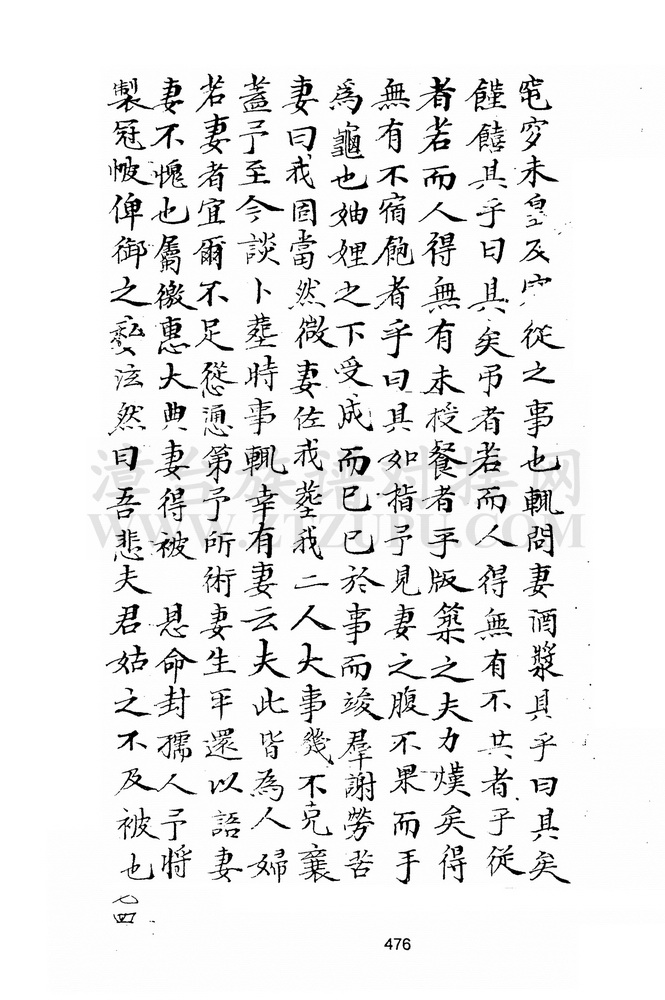 窀穸未皇及 從之事也輒問妻酒漿具乎曰具矣
饉饎其乎曰具矣弔者若而人得無有不共者乎從
者若而人得無有未授餐者乎版築之夫力熯矣得
無有不宿飽者乎曰具如指予見妻之腹不果而手
為龜也妯娌之下受成而已已於事而竣羣謝勞苦
妻曰我固當然微妻佐我塟我二人大事幾不克襄
蓋予至今談卜塟時事輒幸有妻云夫此皆為人婦
若妻者宜爾不足慫慂第予所術妻生平還以語妻
妻不愧也屬徼惠大典妻得被 恩命封孺人予將
製冠帔俾御之妻泫然曰吾悲夫君姑之不及被也
七四
476
漳台族谱对接网
WWW.ZTZUPU.COM